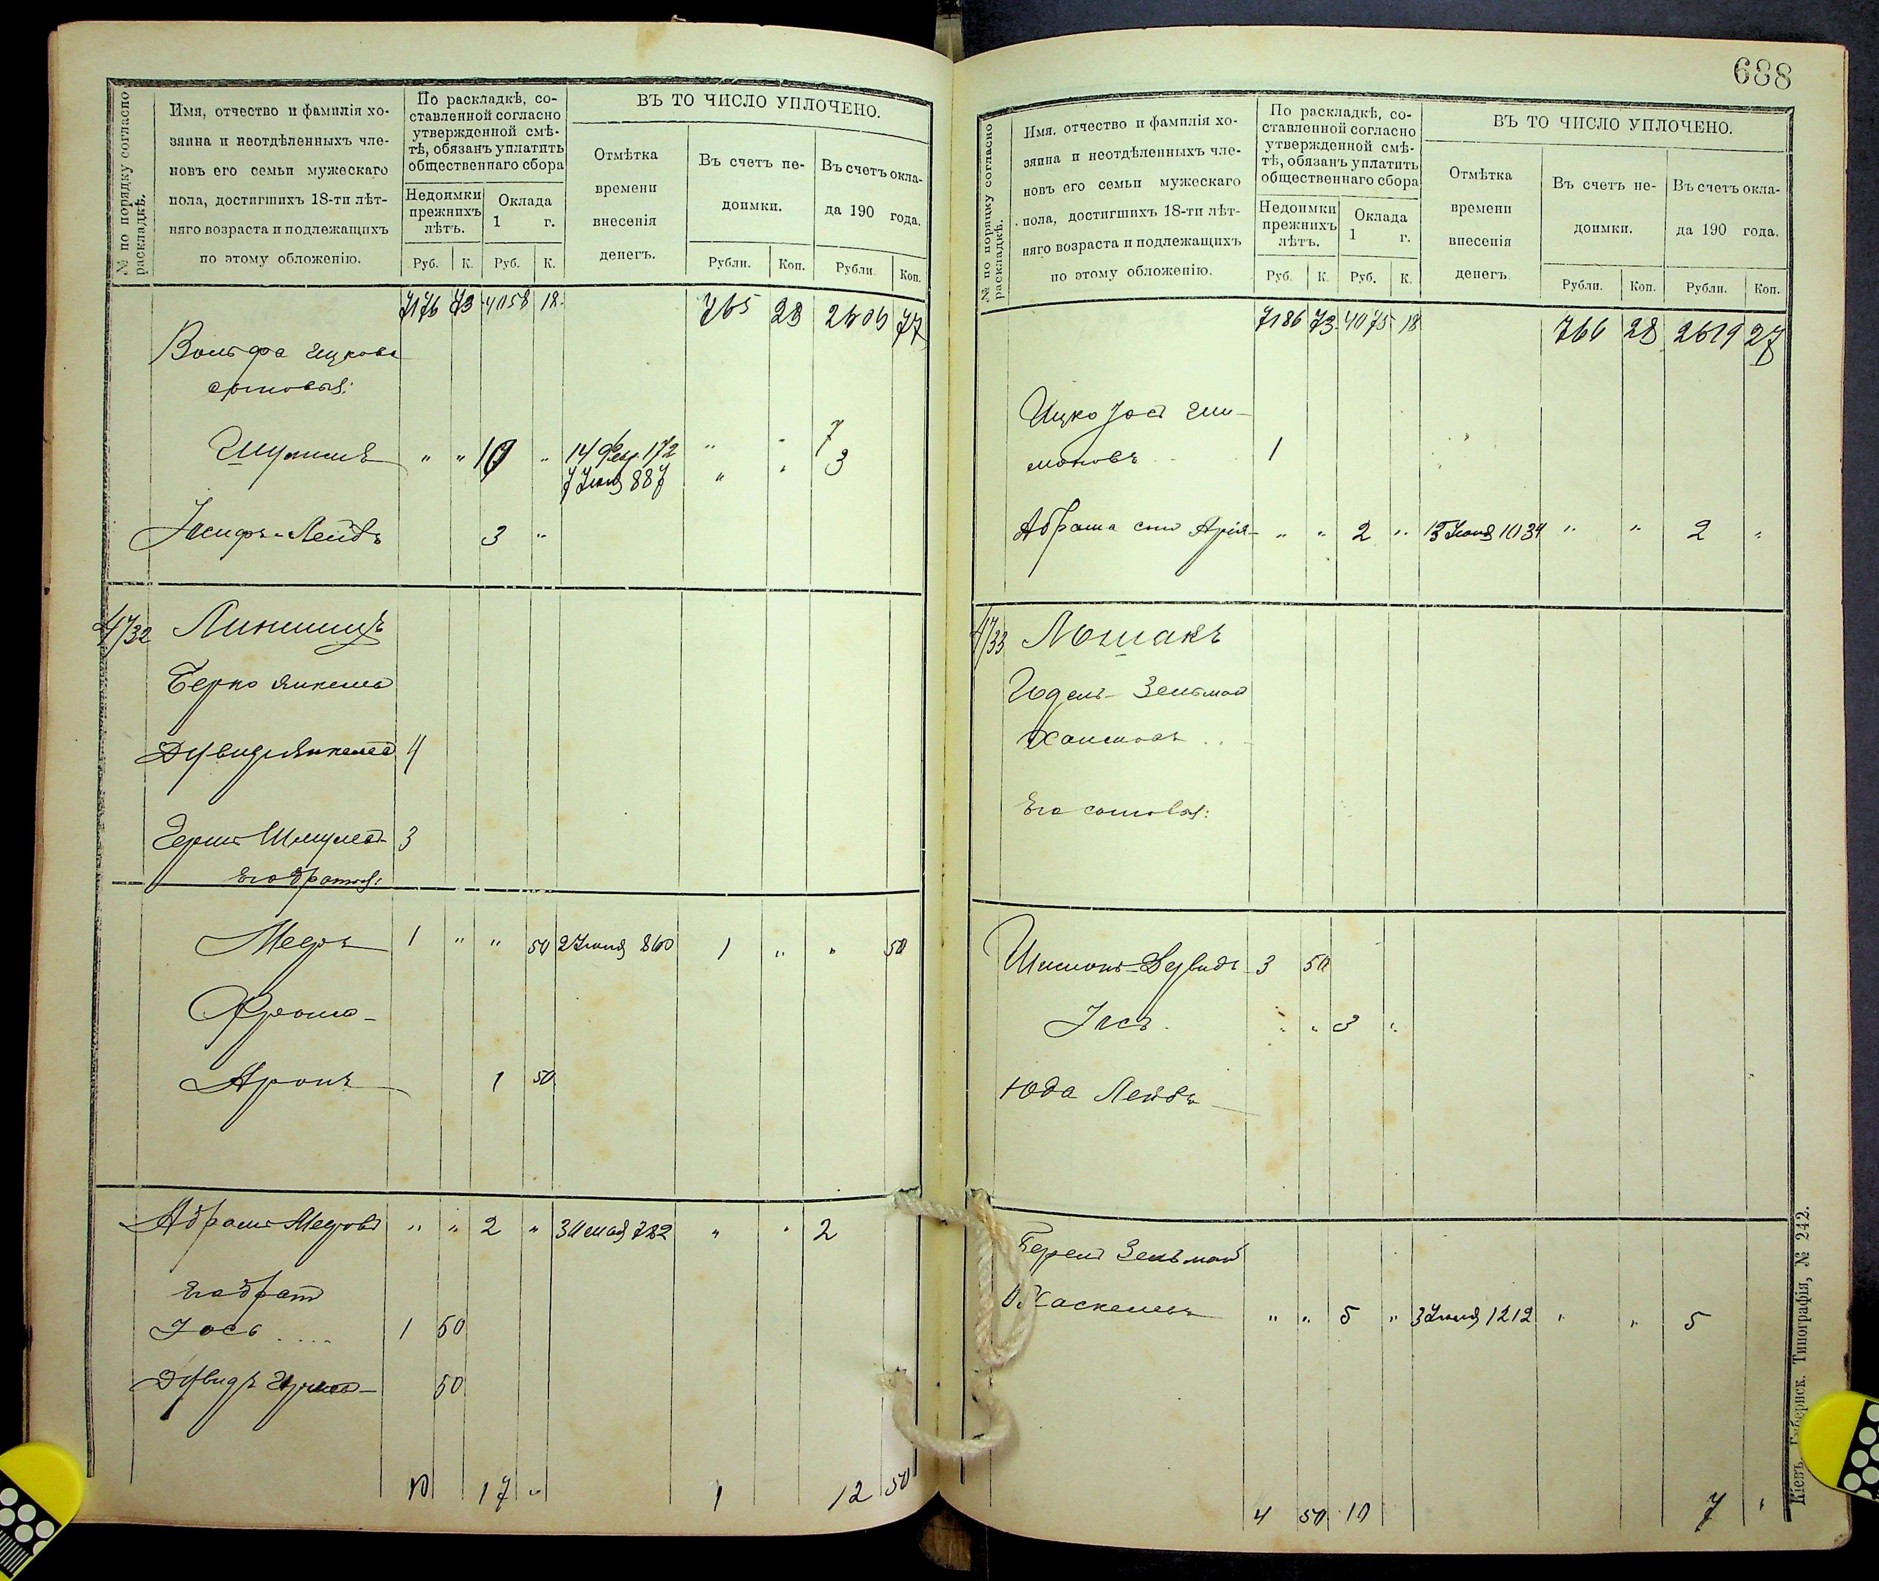 № по порядку согласно раскладкѣ.
Имя, отчество и фамилія хо-
зяина и неотдѣленныхъ чле-
новъ его семьи мужескаго
пола, достигшихъ 18-ти лѣт-
няго возраста и подлежащихъ
по этому обложенію.
По раскладкѣ, со-
ставленной согласно
утвержденной смѣ-
тѣ, обязанъ уплатить
общественнаго сбора
Недоимки прежнихъ лѣтъ.
Оклада 1 г.
Руб. К. Руб. К.
ВЪ ТО ЧИСЛО УПЛОЧЕНО.
Отмѣтка
времени
внесенія
денегъ.
Въ счетъ не-
доимки.
Въ счетъ окла-
да 190 года.
Рубли. Коп. Рубли Коп.
7176 73 4058 18 765 28 2609 77
Вольфа Ицкова
сыновья:
10 14 Февр. 172 7
7 Іюня 887 3
Іосифъ-Лейбъ 3 "
4732
Берко Янкелев
Дувидъ Янкелев 4
Герш Шмулев 3
Его братья:
Мееръ 1 " " 50 2 Іюня 860 1 " " 50
Фроим
Аронъ 1 50
Абрамъ Мееровъ " " 2 " 30 мая 782 " " 2
Его братъ
Іось .... 1 50
Дувидъ 50
10 17 " 1 12 50
688
№ по порядку согласно раскладкѣ.
Имя, отчество и фамилія хо-
зяина и неотдѣленныхъ чле-
новъ его семьи мужескаго
пола, достигшихъ 18-ти лѣт-
няго возраста и подлежащихъ
по этому обложенію.
По раскладкѣ, со-
ставленной согласно
утвержденной смѣ-
тѣ, обязанъ уплатить
общественнаго сбора
Недоимки прежнихъ лѣтъ.
Оклада 1 г.
Руб. К. Руб. К.
ВЪ ТО ЧИСЛО УПЛОЧЕНО.
Отмѣтка
времени
внесенія
денегъ.
Въ счетъ не-
доимки.
Въ счетъ окла-
да 190 года.
Рубли. Коп. Рубли. Коп.
7186 73 4075 18 766 28 2619 27
Ицко Іос Ши-
моновъ 1
Абрама сын Арія " " 2 " 15 Іюня 1034 " " 2 "
4733 Лошакъ
Юдель-Зельман
Его сыновья:
Шимонъ-Дувидъ 3 50
Іось " " 3 "
Юда Лейбъ
Берел Зельман
Хаскелевъ " " 5 " 3 Іюня 1212 " " 5
4 50 10 7 "
Кіевъ. Губернск. Типографія, № 242.